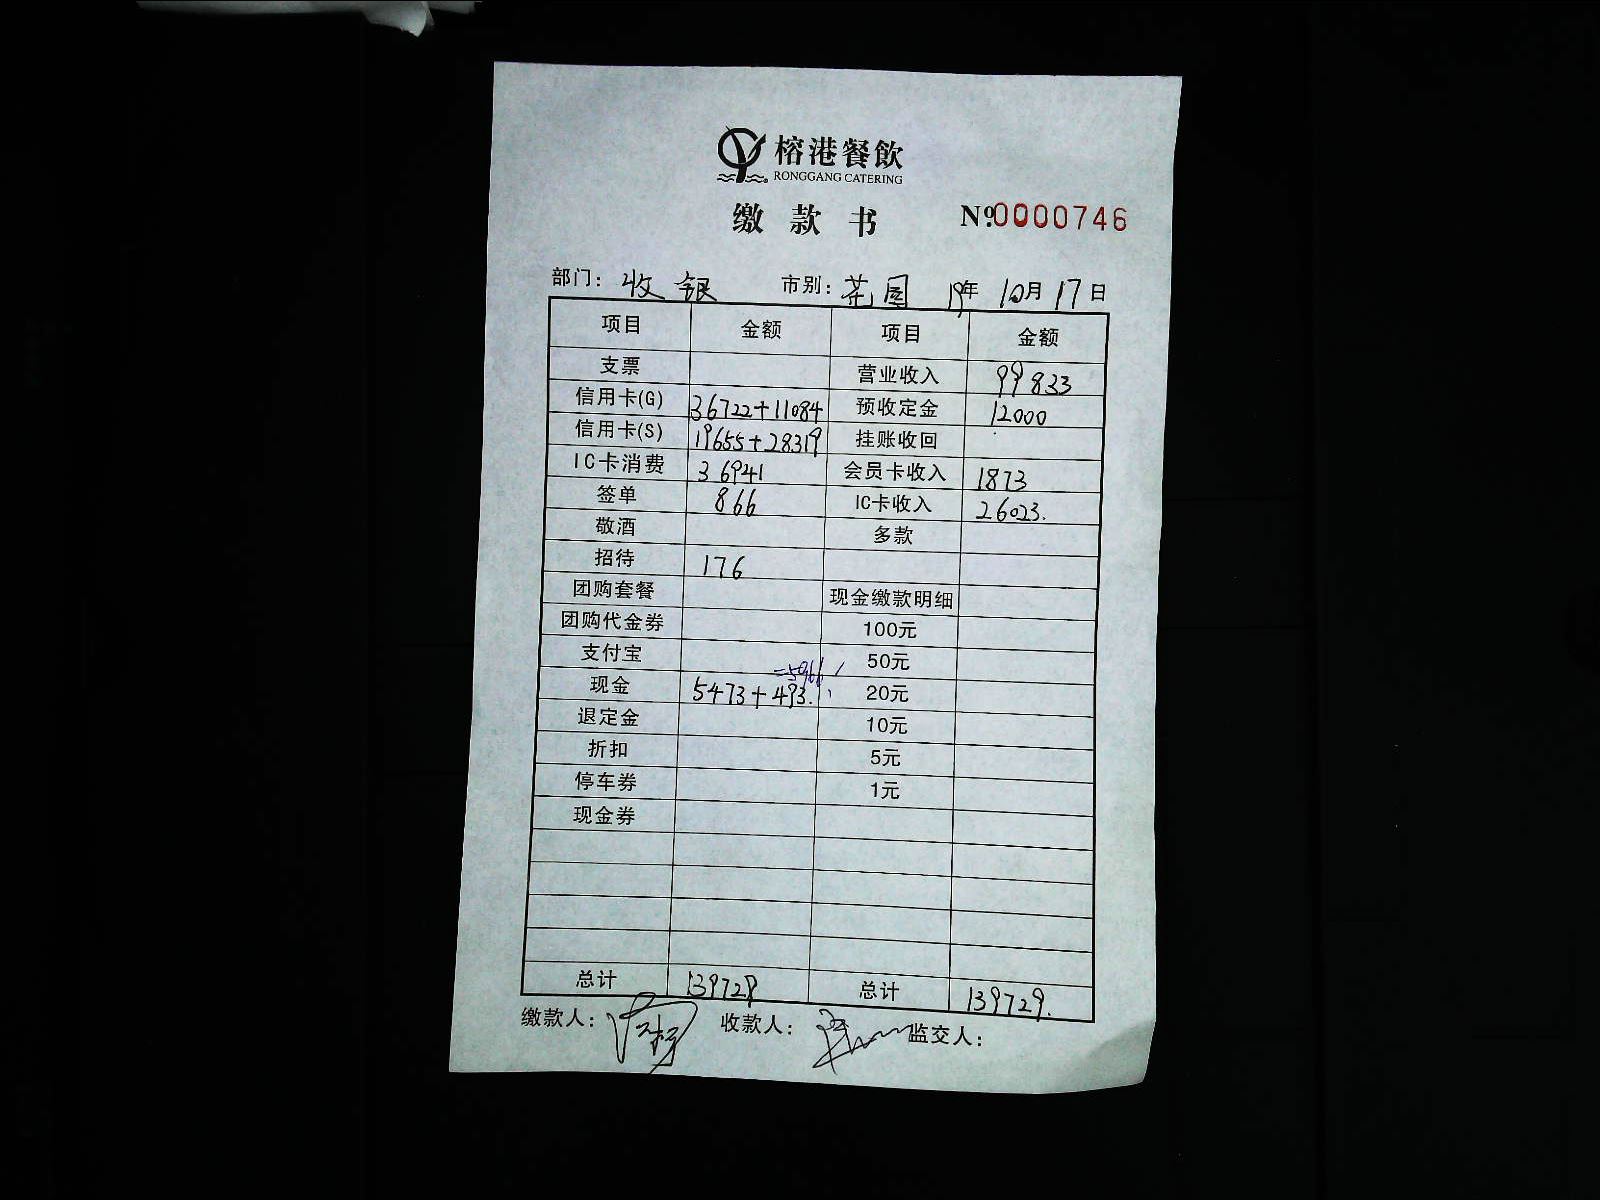 榕港餐飲
RONGGANG CATERING
缴款书 №0000746
部门：收银 市别：花园 19年10月17日
项目 金额 项目 金额
支票 营业收入 99833
信用卡(G) 36722+11084 预收定金 12000
信用卡(S) 19655+28319 挂账收回
IC卡消费 36941 会员卡收入 1873
签单 866 IC卡收入 26023.
敬酒 多款
招待 176
团购套餐 现金缴款明细
团购代金券 100元
支付宝 50元
=5966
现金 5473+493. 20元
退定金 10元
折扣 5元
停车券 1元
现金券
总计 139729 总计 139729.
缴款人： 收款人： 监交人：